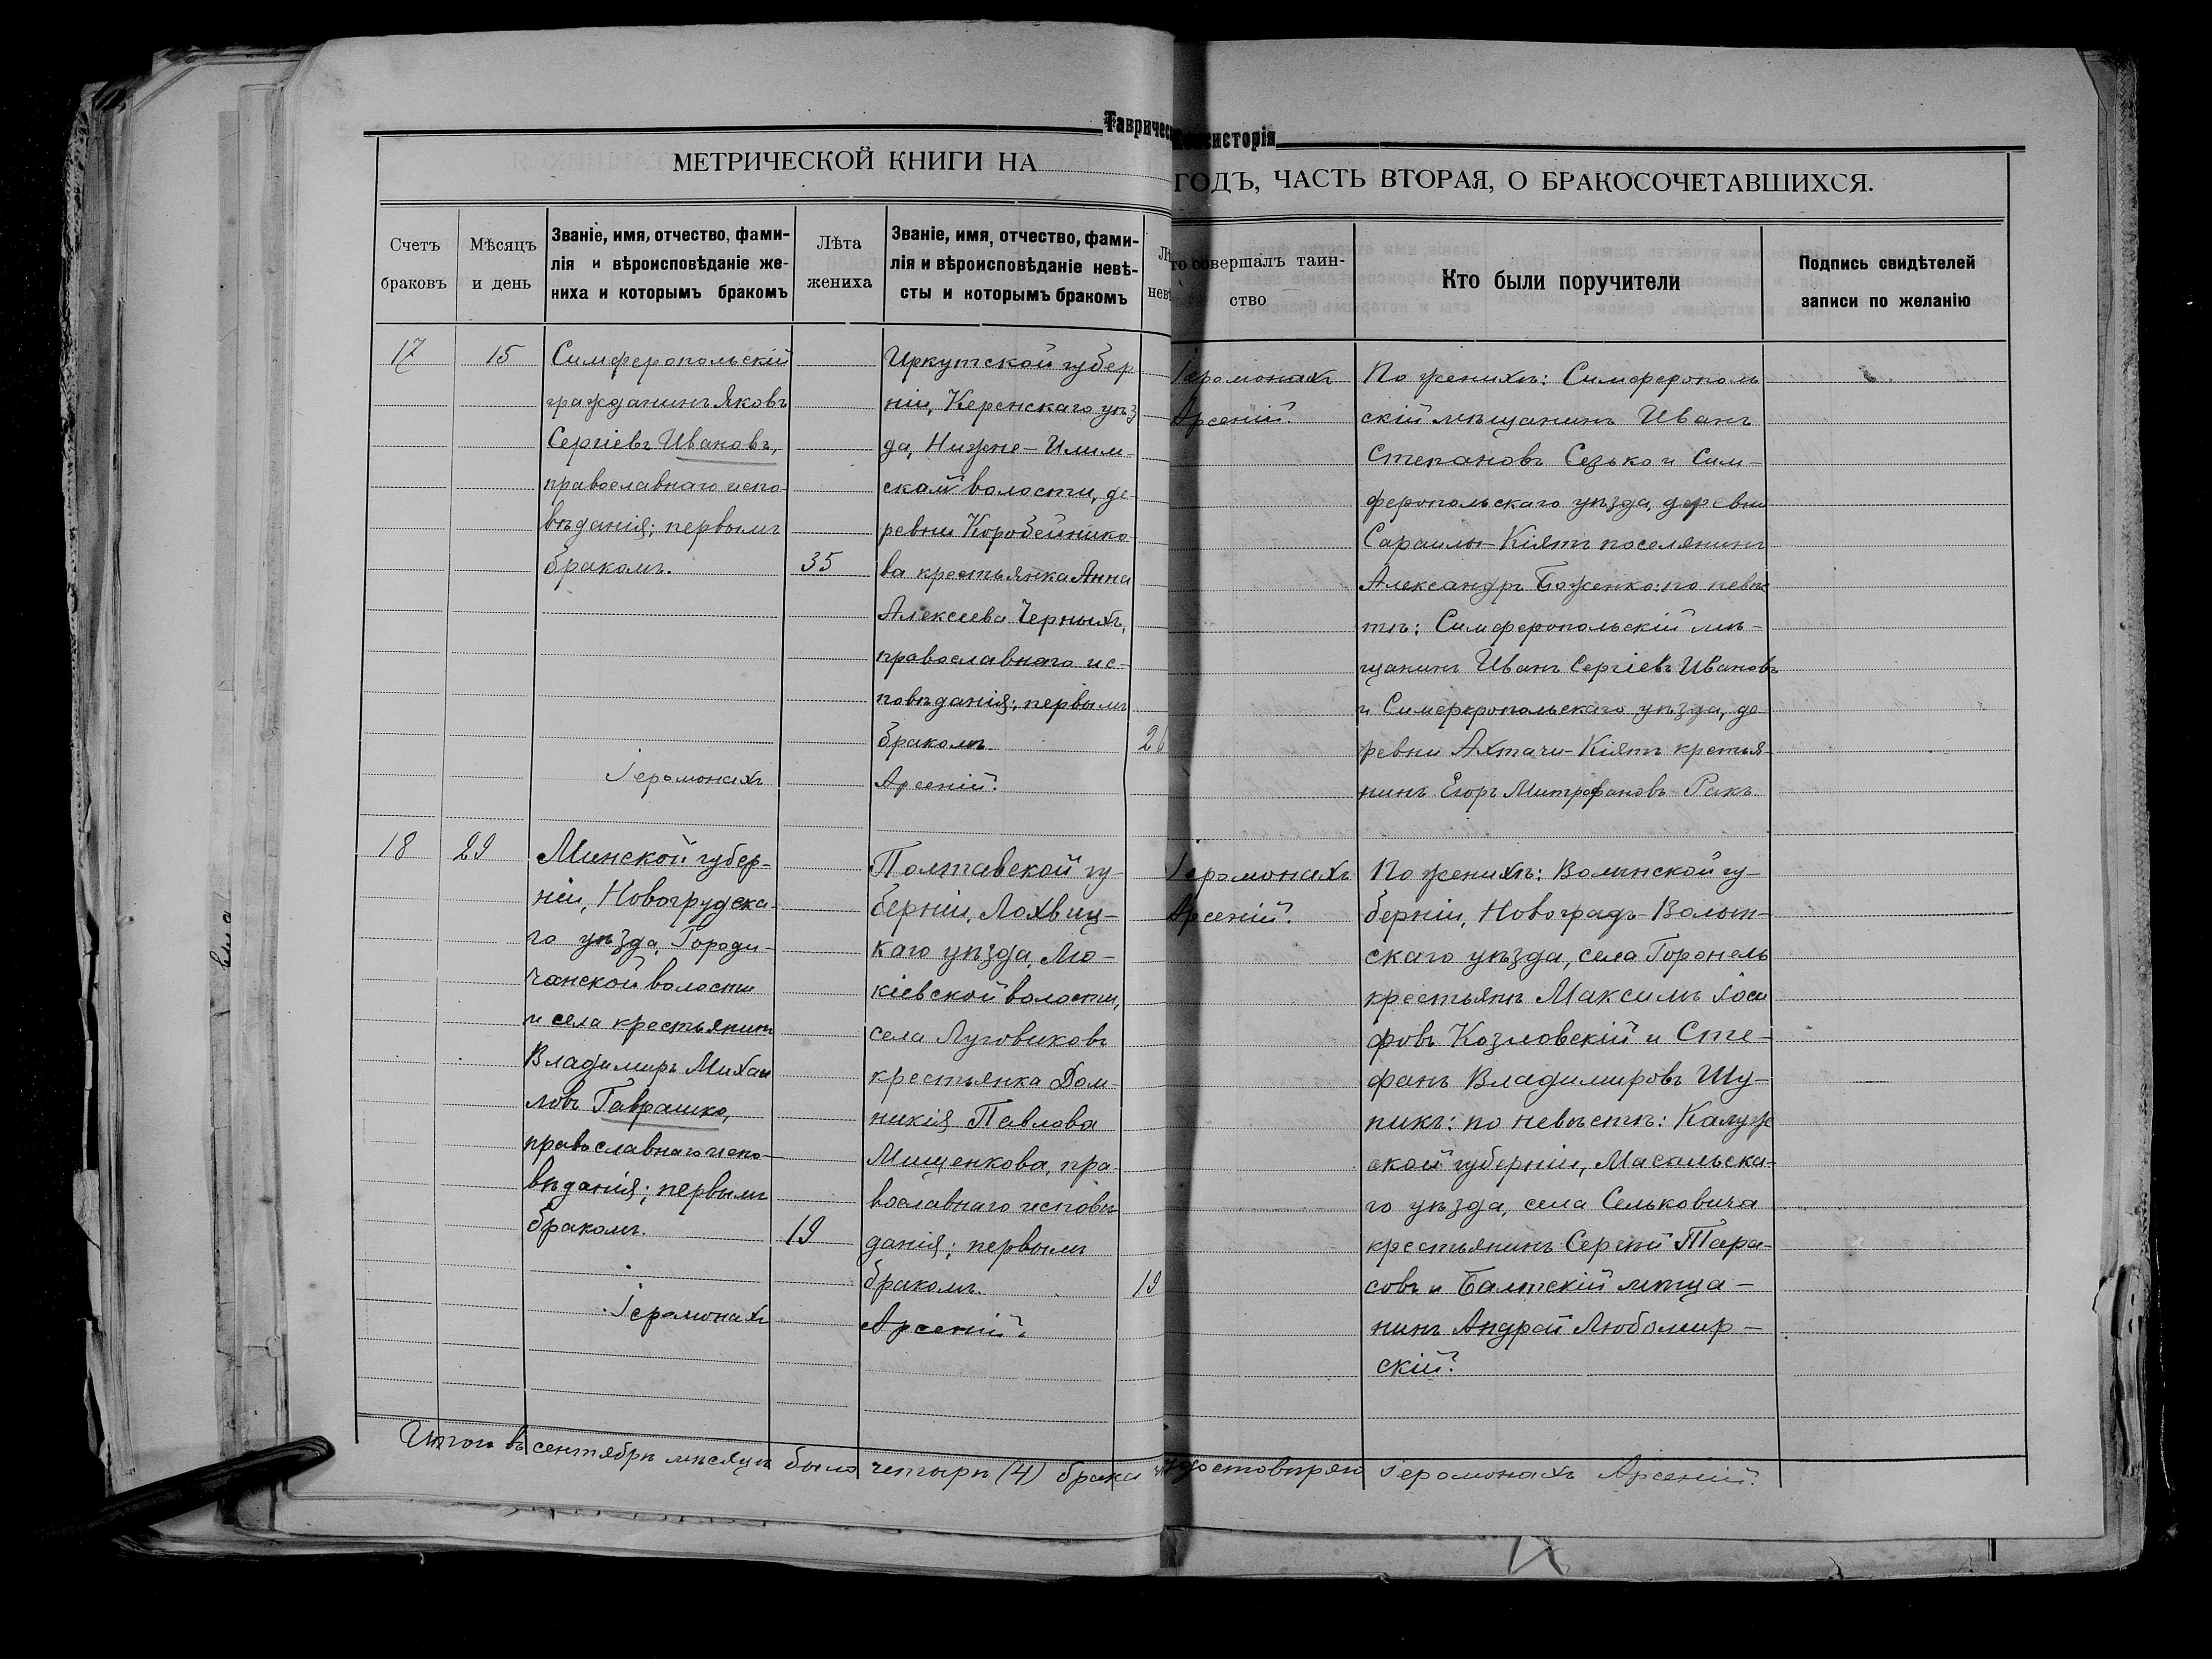 Тавричес
Консисторія
МЕТРИЧЕСКОЙ КНИГИ НА
ГОДЪ, ЧАСТЬ ВТОРАЯ, О БРАКОСОЧЕТАВШИХСЯ.
Счетъ
браковъ
Мѣсяцъ
и день
Званіе, имя, отчество, фами-
лія и вѣроисповѣданіе же-
ниха и которымъ бракомъ
Лѣта
жениха
Званіе, имя, отчество, фами-
лія и вѣроисповѣданіе невѣ-
сты и которымъ бракомъ
Лѣ
невѣ
то совершалъ таин-
ство
Кто были поручители
Подпись свидѣтелей
записи по желанію
17
15
Симферопольскій
гражданинъ Яковъ
Сергіевъ Ивановъ,
православнаго испо-
вѣданія; первымъ
бракомъ.
35
Іеромонахъ
Иркутской губер
ніи, Керенскаго уѣз
да, Нижне-Илим-
ской волости, де-
ревни Коробейнико-
ва крестьянка Анна
Алексеева Черныхъ,
православнаго ис-
повѣданія; первымъ
бракомъ.
26
Арсеній.
Іеромонахъ
Арсеній.
По женихѣ: Симферополь
скій мѣщанинъ Иванъ
Степановъ Сезько и Сим-
феропольскаго уѣзда, деревни
Сараилы-Кіятъ поселянинъ
Александръ Боженко: по невѣс
тѣ: Симферопольскій мѣ-
щанинъ Иванъ Сергіевъ Ивановъ
и Симферопольскаго уѣзда, де-
ревни Ахтачи-Кіятъ крестья-
нинъ Егоръ Митрофановъ Ракъ
18
29
Минской губер-
ніи, Новогрудска-
го уѣзда, Городи-
чанской волости
и села крестьянинъ
Владимиръ Михаи
ловъ Гаврашко,
православнаго испо-
вѣданія; первымъ
бракомъ.
19
Іеромонахъ
Полтавской гу-
берніи, Лохвиц-
каго уѣзда, Лю-
кіевской волости,
села Луговиковъ
крестьянка Дом-
никія Павлова
Мищенкова, пра-
вославнаго исповѣ
данія; первымъ
бракомъ.
19
Арсеній.
Іеромонахъ
Арсеній.
По женихѣ: Волынской гу-
берніи, Новоградъ-Волын-
скаго уѣзда, села Торонель
крестьянъ Максимъ Іоси
фовъ Козловскій и Сте-
фанъ Владимировъ Шу-
пикъ: по невѣстѣ: Калуж
ской губерніи, Масальска-
го уѣзда, села Сельковича
крестьянинъ Сергій Тара-
совъ и Балтскій мѣща-
нинъ Андрей Любомир-
скій.
Итого въ сентябрѣ мѣсяцѣ было четыре (4) брака
удостовѣряю Іеромонахъ Арсеній.